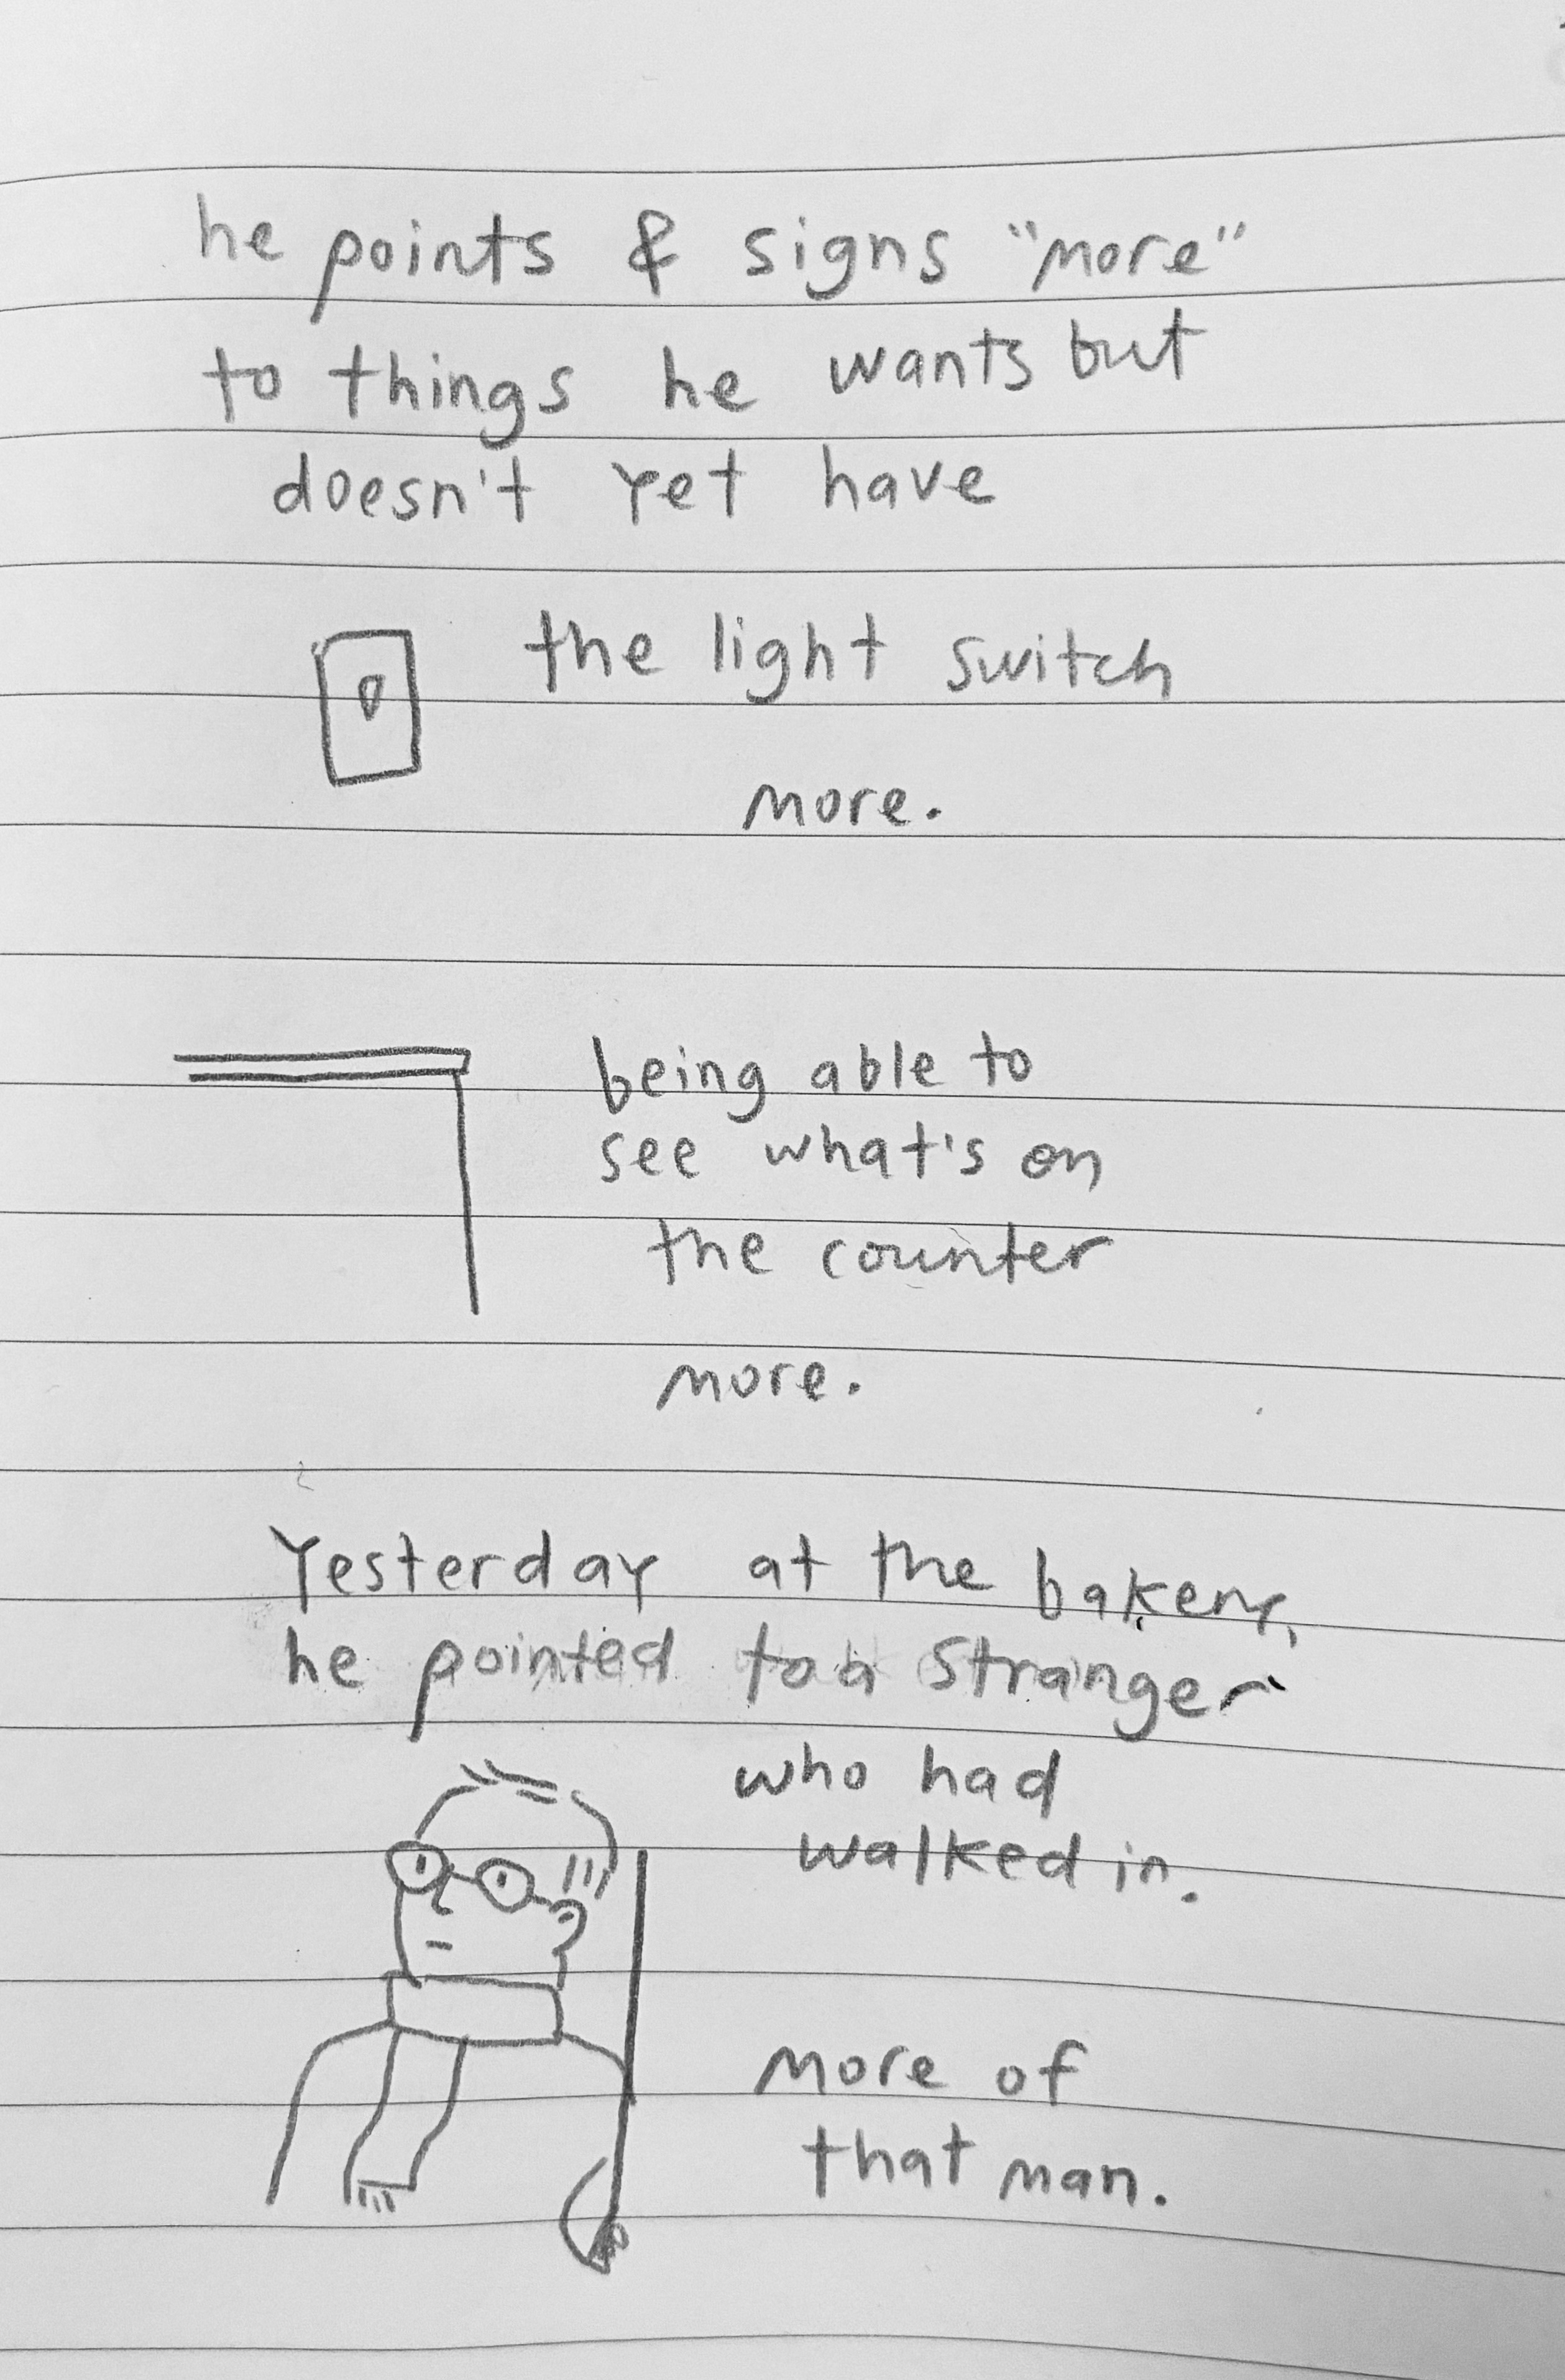 he points & signs "more"
to things he wants but
doesn't yet have
the light switch
more.
being able to
see what's on
the counter
more.
Yesterday at the bakery,
he pointed to a stranger
who had
walked in.
more of
that man.